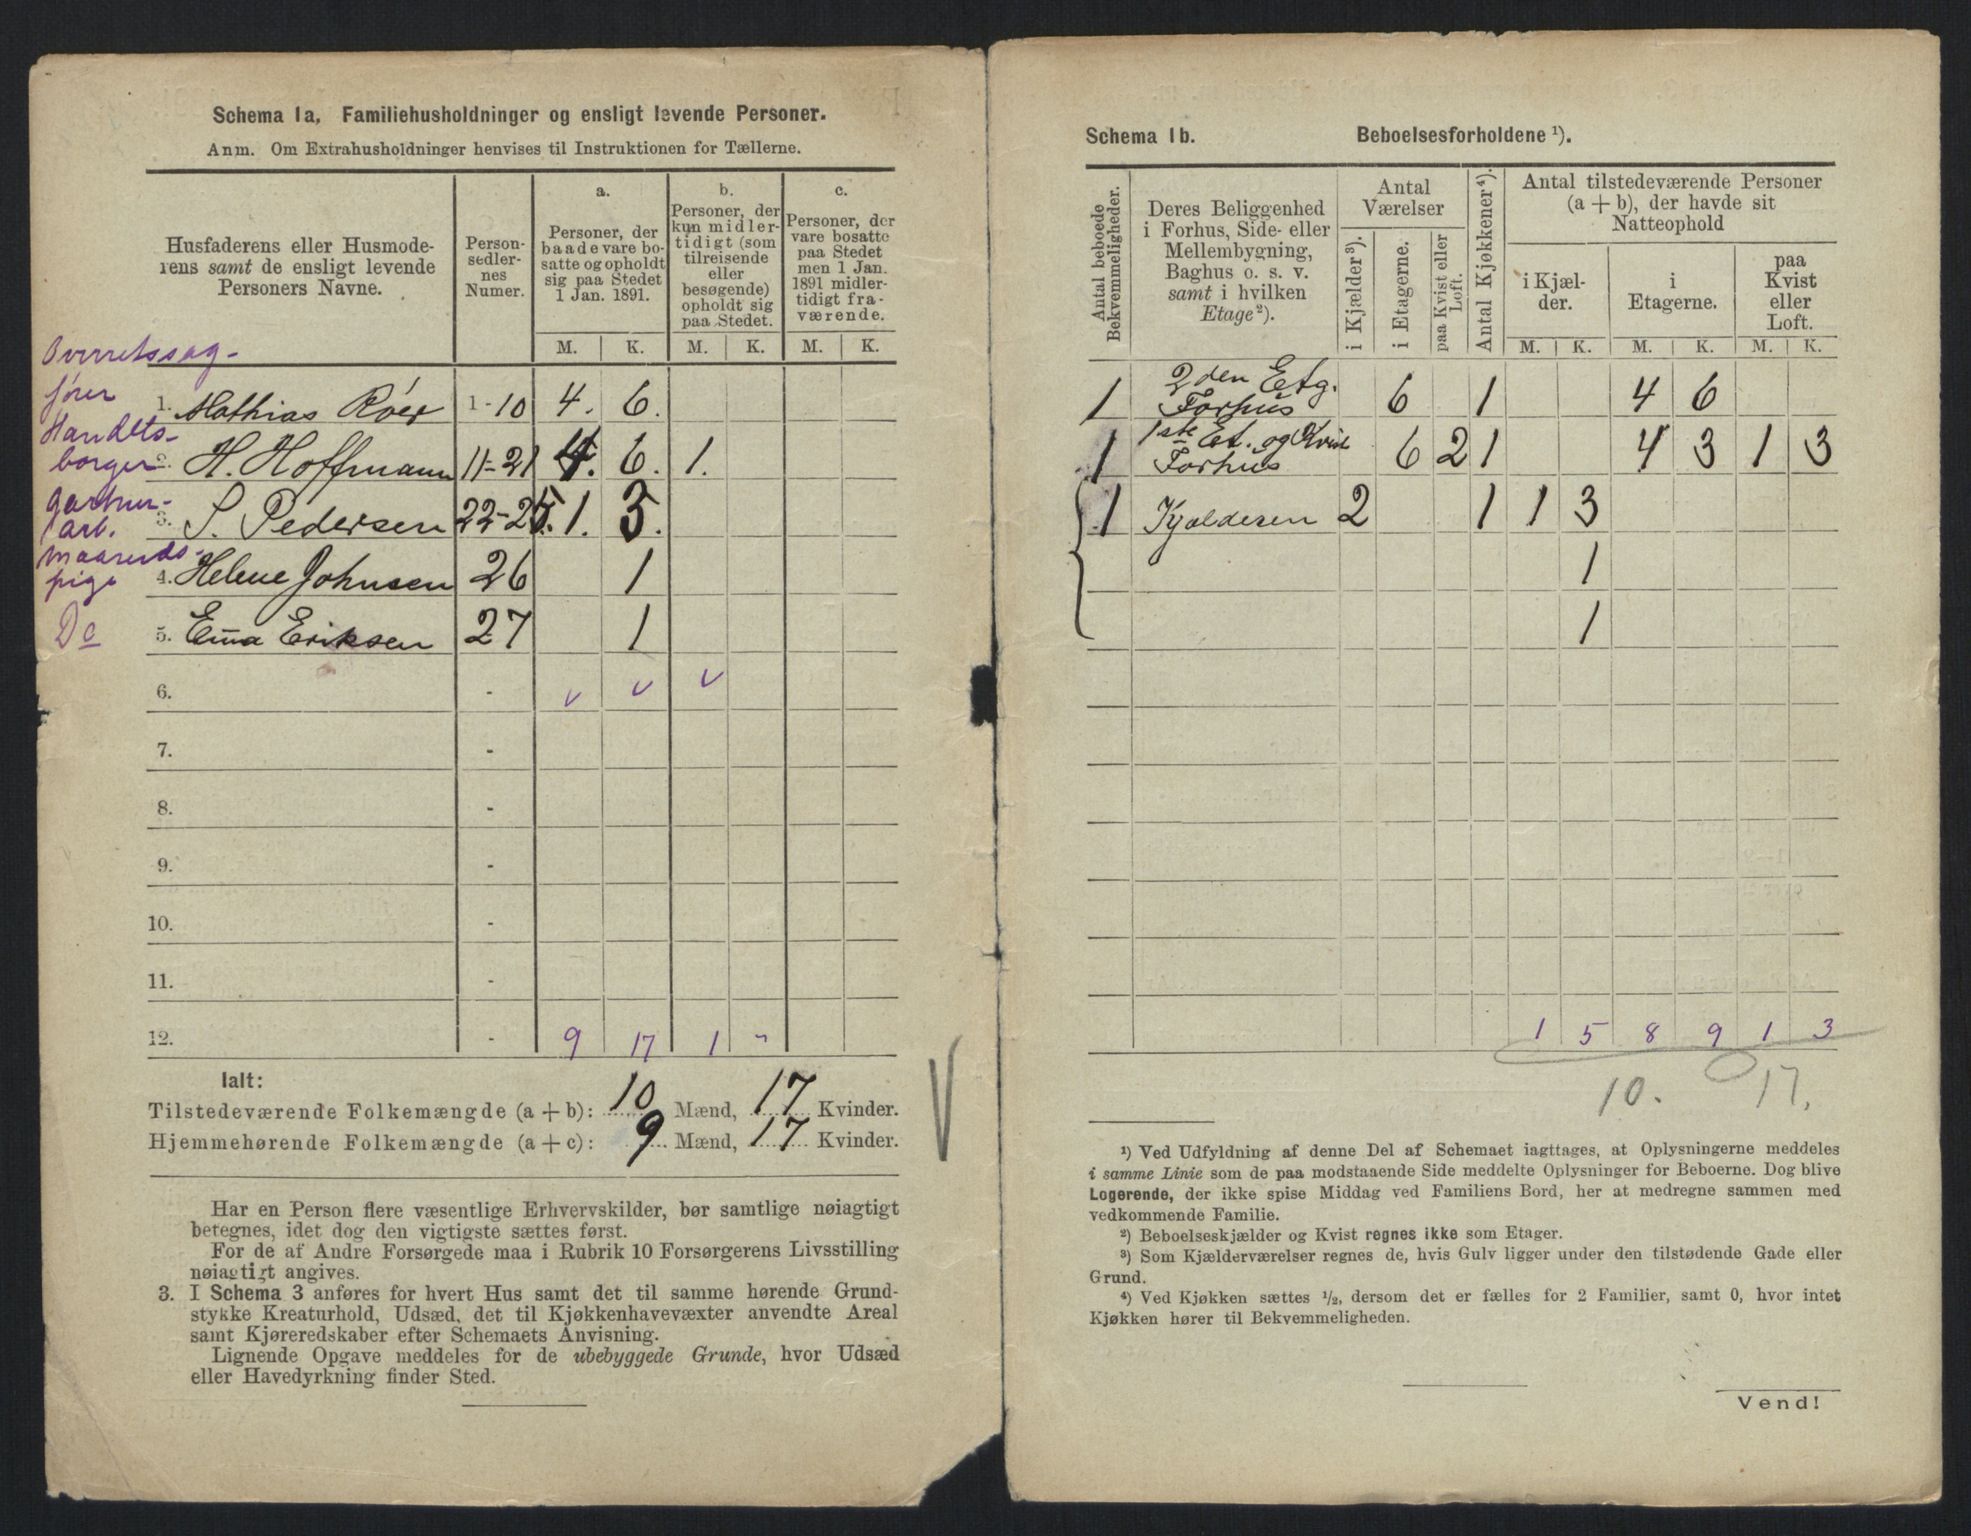 Schema 1a, Familiehusholdninger og ensligt levende Personer.
Anm. Om Extrahusholdninger henvises til Instruktionen for Tællerne.
Husfaderens eller Husmode-
rens samt de ensligt levende
Personers Navne.
Person-
sedler-
nes
Numer.
a.
Personer, der
baade vare bo-
satte og opholdt
sig paa Stedet
1 Jan. 1891.
b.
Personer, der
kun midler-
tidigt (som
tilreisende
eller
besøgende)
opholdt sig
paa Stedet.
c.
Personer, der
vare bosatte
paa Stedet
men 1 Jan.
1891 midler-
tidigt fra-
værende.
M. K. M. K. M. K.
Overretssag-
fører
1. Mathias Röer 1-10 4. 6.
Handels-
borger
2. H. Hoffmann 11-21 4. 6. 1.
Gartner-
arb.
3. S. Pedersen 22-25. 1. 3.
4. Helene Johnsen 26 1
pige
Do
5. Em̄a Eriksen 27 1
6. - v v v
7. -
8. -
9. -
10. -
11. -
12. - 9 17 1 "
Ialt:
Tilstedeværende Folkemængde (a + b): 10 Mænd, 17 Kvinder.
Hjemmehørende Folkemængde (a + c): 9 Mænd, 17 Kvinder.
V
Har en Person flere væsentlige Erhvervskilder, bør samtlige nøiagtigt
betegnes, idet dog den vigtigste sættes først.
For de af Andre Forsørgede maa i Rubrik 10 Forsørgerens Livsstilling
nøiagtigt angives.
3. I Schema 3 anføres for hvert Hus samt det til samme hørende Grund-
stykke Kreaturhold, Udsæd, det til Kjøkkenhavevæxter anvendte Areal
samt Kjøreredskaber efter Schemaets Anvisning.
Lignende Opgave meddeles for de ubebyggede Grunde, hvor Udsæd
eller Havedyrkning finder Sted.
Schema 1b. Beboelsesforholdene ¹).
Antal beboede
Bekvemmeligheder.
Deres Beliggenhed
i Forhus, Side- eller
Mellembygning,
Baghus o. s. v.
samt i hvilken
Etage²).
Antal
Værelser
i Kjælder³).
i Etagerne.
paa Kvist eller
Loft.
Antal Kjøkkener⁴).
Antal tilstedeværende Personer
(a + b), der havde sit
Natteophold
i Kjæl-
der.
i
Etagerne.
paa
Kvist
eller
Loft.
M. K. M. K. M. K.
2den Etg.
1 Forhus 6 1 4 6
1ste Et. og Kvist
1 Forhus 6 2 1 4 3 1 3
1 Kjælderen 2 1 1 3
1
1
1 5 8 9 1 3
10. 17.
¹) Ved Udfyldning af denne Del af Schemaet iagttages, at Oplysningerne meddeles
i samme Linie som de paa modstaaende Side meddelte Oplysninger for Beboerne. Dog blive
Logerende, der ikke spise Middag ved Familiens Bord, her at medregne sammen med
vedkommende Familie.
²) Beboelseskjælder og Kvist regnes ikke som Etager.
³) Som Kjælderværelser regnes de, hvis Gulv ligger under den tilstødende Gade eller
Grund.
⁴) Ved Kjøkken sættes ½, dersom det er fælles for 2 Familier, samt 0, hvor intet
Kjøkken hører til Bekvemmeligheden.
Vend!